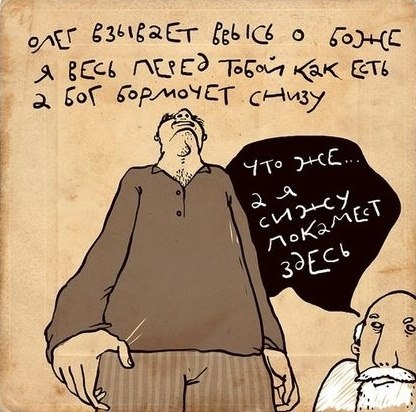 олег взывает ввысь о боже
я весь перед тобой как есть
а бог бормочет снизу
что же...
а я
сижу
покамест
здесь